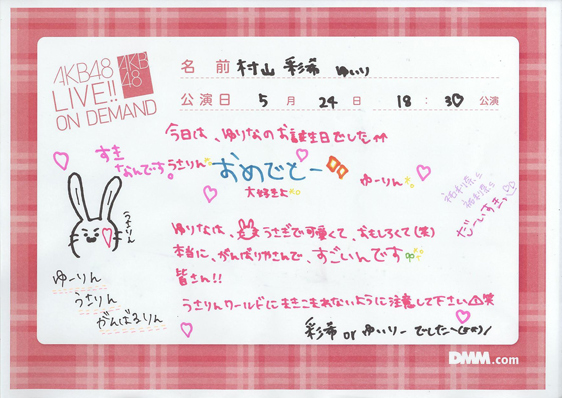 AKB48
LIVE!!
ON DEMAND
AKB
48
名 前 村山 彩希 ゆいり
公演日 5 月 24 日 18 : 30 公演
今日は、ゆりなのお誕生日でした
すき
なんです。
うさりん
おめでとー
ゆーりん
大好きよ
だーいすきっ
うさりん
ゆりなは、うさぎで可愛くて、おもしろくて(笑)
本当に、がんばりやさんで、すごいんです
皆さん!!
うさりんワールドにまきこまれないように注意して下さい笑
ゆーりん
うさりん
がんばるりん
彩希 or ゆいりー でした〜
DMM.com